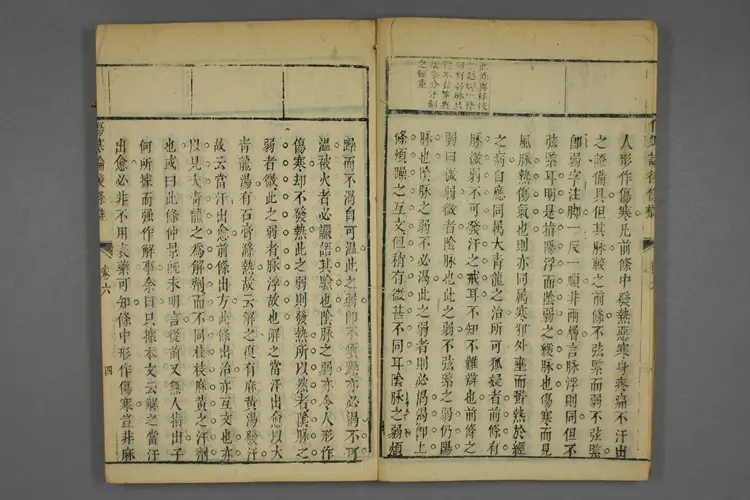 人形作傷寒凡前條中發熱惡寒身疼痛不汗出
之證備具但其脉較之前條不弦緊而弱不弦緊
卽弱字注脚一反一順非兩層言脉浮則同但不
弦緊耳明是指陽浮而陰弱之緩脉也傷寒而見
風脉熱傷氣也則亦同屬寒抑外壅而鬱熱於經
之病自應同屬大青龍之治所可狐疑者前條有
脉微弱不可發汗之戒耳不知不難辯也前條之
弱曰微弱微者陰脉也此之弱不弦緊之弱仍陽
脉也陰脉之弱不必渴此之弱者則必渴渴卽上
條煩躁之互文但稍有微甚不同耳陰脉之弱煩
躁而不渴自可溫此之弱卽不煩躁亦必渴不可
溫被火者必譫語其驗也陰脉之弱亦令人形作
傷寒却不發熱此之弱則發熱所以然者陰脉之
弱者微此之弱者脉浮故也解之當汗出愈以大
青龍湯有石膏滌熱故云解之復有麻黃湯發汗
故云當汗出愈前條出方此條出治亦互文也亦
以見大青龍之爲解劑而不同桂枝麻黃之汗劑
也或曰此條仲景旣未明言從前又無人指出子
何所據而强作解事余曰只據本文云解之當汗
出愈必非不用表藥可知條中形作傷寒豈非麻
傷寒論後條辯
卷六
四